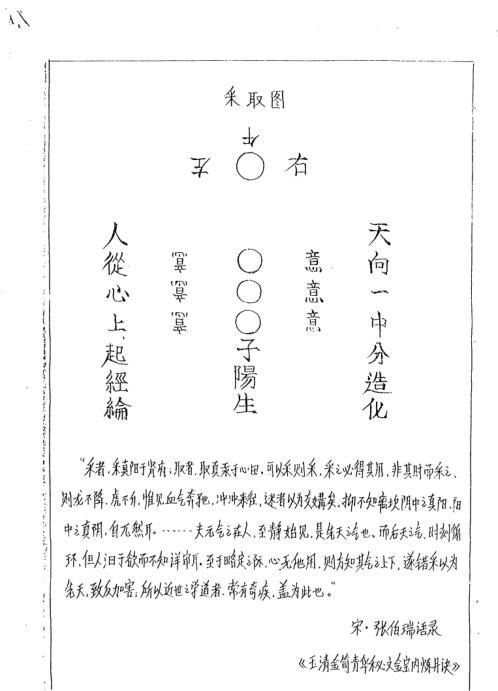 采取图
午
左 右
天向一中分造化
意意意
子陽生
人從心上起經綸
“采者，采真阳于肾府；取者，取真汞于心田，可以采则采，采之必得其用，非其时而采之、
则龙不降、虎不升，惟见血气奔驰，冲冲来往，迷者以为交媾矣，抑不知离坎阴中之真阳、阳
中之真阴，自兀然耳。……夫元气之在人，至静始见，是先天之气也、而后天之气，时刻循
环，但人汩于欲而不知详审耳。至于略定之际，心无他用，则方知其气之上下，遂错采以为
先天，致反加害；所以近世之学道者，常有奇疾，盖为此也。”
宋·张伯瑞语录
《玉清金笥青华秘文金室内炼丹诀》